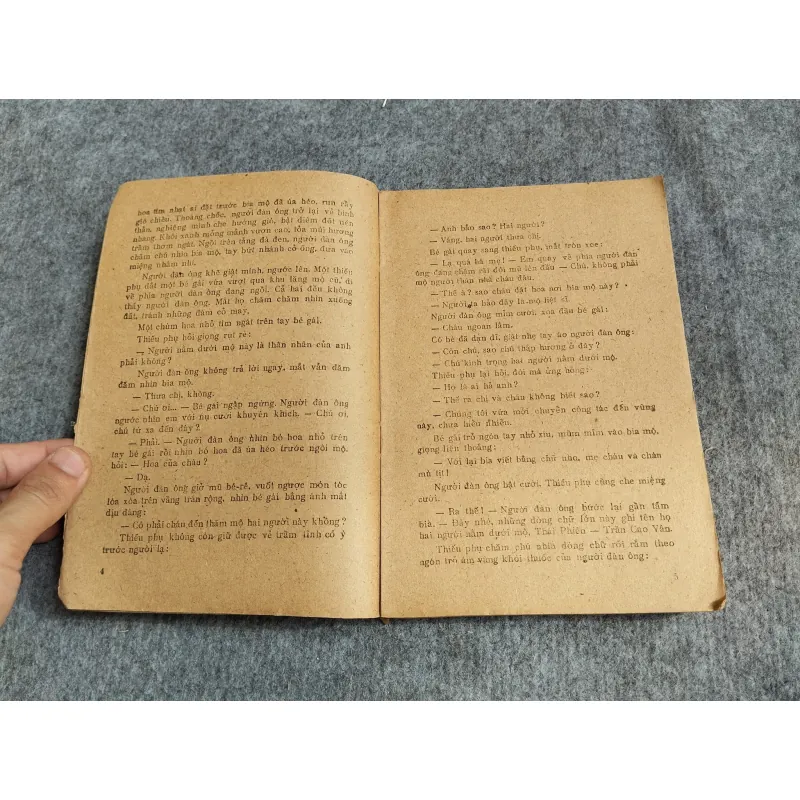 hoa tím nhạt ai đặt trước bia mộ đã úa héo, run rẩy
gió chiều. Thoáng chốc, người đàn ông trở lại vẻ bình
thản, nghiêng mình che hướng gió, bật diêm đốt nén
nhang. Khói xanh mỏng mảnh vươn cao, tỏa mùi hương
trầm thơm ngát. Ngồi trên tảng đá đen, người đàn ông
chăm chú nhìn bia mộ, tay bứt nhánh cỏ úng, đưa vào
miệng nhấm nhấ.
Người đàn ông khẽ giật mình, ngước lên. Một thiếu
phụ dắt một bé gái vừa vượt qua khu lăng mộ cũ, đi
về phía người đàn ông đang ngồi. Cả hai đều không
thấy người đàn ông. Mắt họ chăm chăm nhìn xuống
đất, tránh những đám cỏ may.
Một chùm hoa nhỏ tím ngát trên tay bé gái.
Thiếu phụ hỏi giọng rụt rè:
— Người nằm dưới mộ này là thân nhân của anh
phải không?
Người đàn ông không trả lời ngay, mắt vẫn đăm
đăm nhìn bia mộ.
— Thưa chị, không.
— Chú ơi... — Bé gái ngập ngừng. Người đàn ông
ngước nhìn em với nụ cười khuyến khích. — Chú ơi,
chú từ xa đến đây?
— Phải. — Người đàn ông nhìn bó hoa nhỏ trên
tay bé gái rồi nhìn bó hoa đã úa héo trước ngôi mộ.
hỏi: — Hoa của cháu?
— Dạ.
Người đàn ông giở mũ bê-rê, vuốt ngược món tóc
lòa xòa trên vầng trán rộng, nhìn bé gái bằng ánh mắt
dịu dàng:
— Có phải cháu đến thăm mộ hai người này không?
Thiếu phụ không còn giữ được vẻ trầm tĩnh cố ý
trước người lạ:
4
— Anh bảo sao? Hai người?
— Vâng, hai người thưa chị.
Bé gái quay sang thiếu phụ, mắt tròn xoe:
— Lạ quá bà mẹ! — Em quay về phía người đàn
ông đang chậm rãi đội mũ lên đầu — Chú, không phải
mộ người thân nhà cháu đâu.
— Thế à? sao cháu đặt hoa nơi bia mộ này?
— Người ta bảo đây là mộ liệt sĩ.
Người đàn ông mỉm cười, xoa đầu bé gái:
— Cháu ngoan lắm.
Cô bé dạn dĩ, giật nhẹ tay áo người đàn ông:
— Còn chú, sao chú thắp hương ở đây?
— Chú kính trọng hai người nằm dưới mộ.
Thiếu phụ lại hỏi, đôi má ửng hồng:
— Họ là ai hả anh?
— Thế ra chị và cháu không biết sao?
— Chúng tôi vừa mới chuyển công tác đến vùng
này, chưa hiểu nhiều.
Bé gái trỏ ngón tay nhỏ xíu, mũm mĩm vào bia mộ,
giọng liến thoắng:
— Với lại bia viết bằng chữ nào, mẹ cháu và cháu
mù tịt!
Người đàn ông bật cười. Thiếu phụ cũng che miệng
cười.
— Ra thế! — Người đàn ông bước lại gần tấm
bia. — Đây nhé, những dòng chữ lớn này ghi tên họ
hai người nằm dưới mộ, Thái Phiên — Trần Cao Vân.
Thiếu phụ chăm chú nhìn dòng chữ rồi rằm theo
ngón trỏ ám vàng khói thuốc của người đàn ông:
5